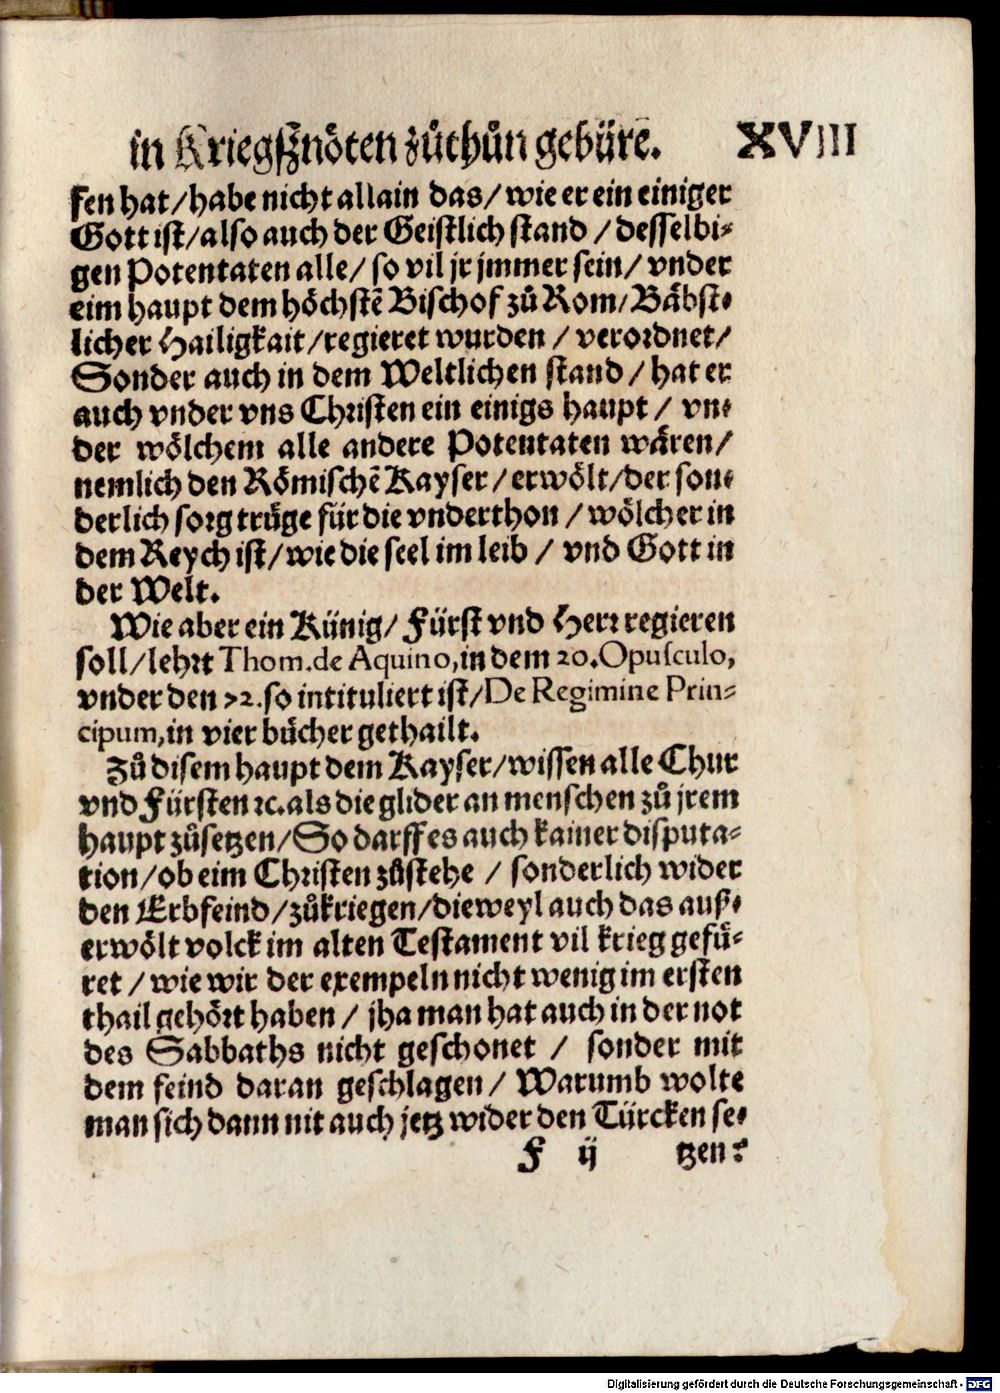 in Kriegſznöten zůthůn gebüre. XVIII
ſen hat / habe nicht allain das / wie er ein einiger
Gott iſt / alſo auch der Geiſtlich ſtand / deſſelbi⸗
gen Potentaten alle / ſo vil jr jmmer ſein / vnder
eim haupt dem höchſtē Biſchof zů Rom / Bäbſt⸗
licher Hailigkait / regieret wurden / verordnet /
Sonder auch in dem Weltlichen ſtand / hat er
auch vnder vns Chriſten ein einigs haupt / vn⸗
der wölchem alle andere Potentaten wären /
nemlich den Römiſchē Kayſer / erwölt / der ſon⸗
derlich ſorg trüge für die vnderthon / wölcher in
dem Reych iſt / wie die ſeel im leib / vnd Gott in
der Welt.
Wie aber ein Künig / Fürſt vnd Herr regieren
ſoll / lehrt Thom. de Aquino, in dem 20. Opuſculo,
vnder den 72. ſo intituliert iſt / De Regimine Prin⸗
cipum, in vier bücher gethailt.
Zů diſem haupt dem Kayſer / wiſſen alle Chur
vnd Fürſten ꝛc. als die glider an menſchen zů jrem
haupt zůſetzen / So darff es auch kainer diſputa⸗
tion / ob eim Chriſten zůſtehe / ſonderlich wider
den Erbfeind / zůkriegen / dieweyl auch das auß⸗
erwölt volck im alten Teſtament vil krieg gefü⸗
ret / wie wir der exempeln nicht wenig im erſten
thail gehört haben / jha man hat auch in der not
des Sabbaths nicht geſchonet / ſonder mit
dem feind daran geſchlagen / Warumb wolte
man ſich dann nit auch jetz wider den Türcken ſe⸗
F ij tzen?
Digitalisierung gefördert durch die Deutsche Forschungsgemeinschaft - DFG